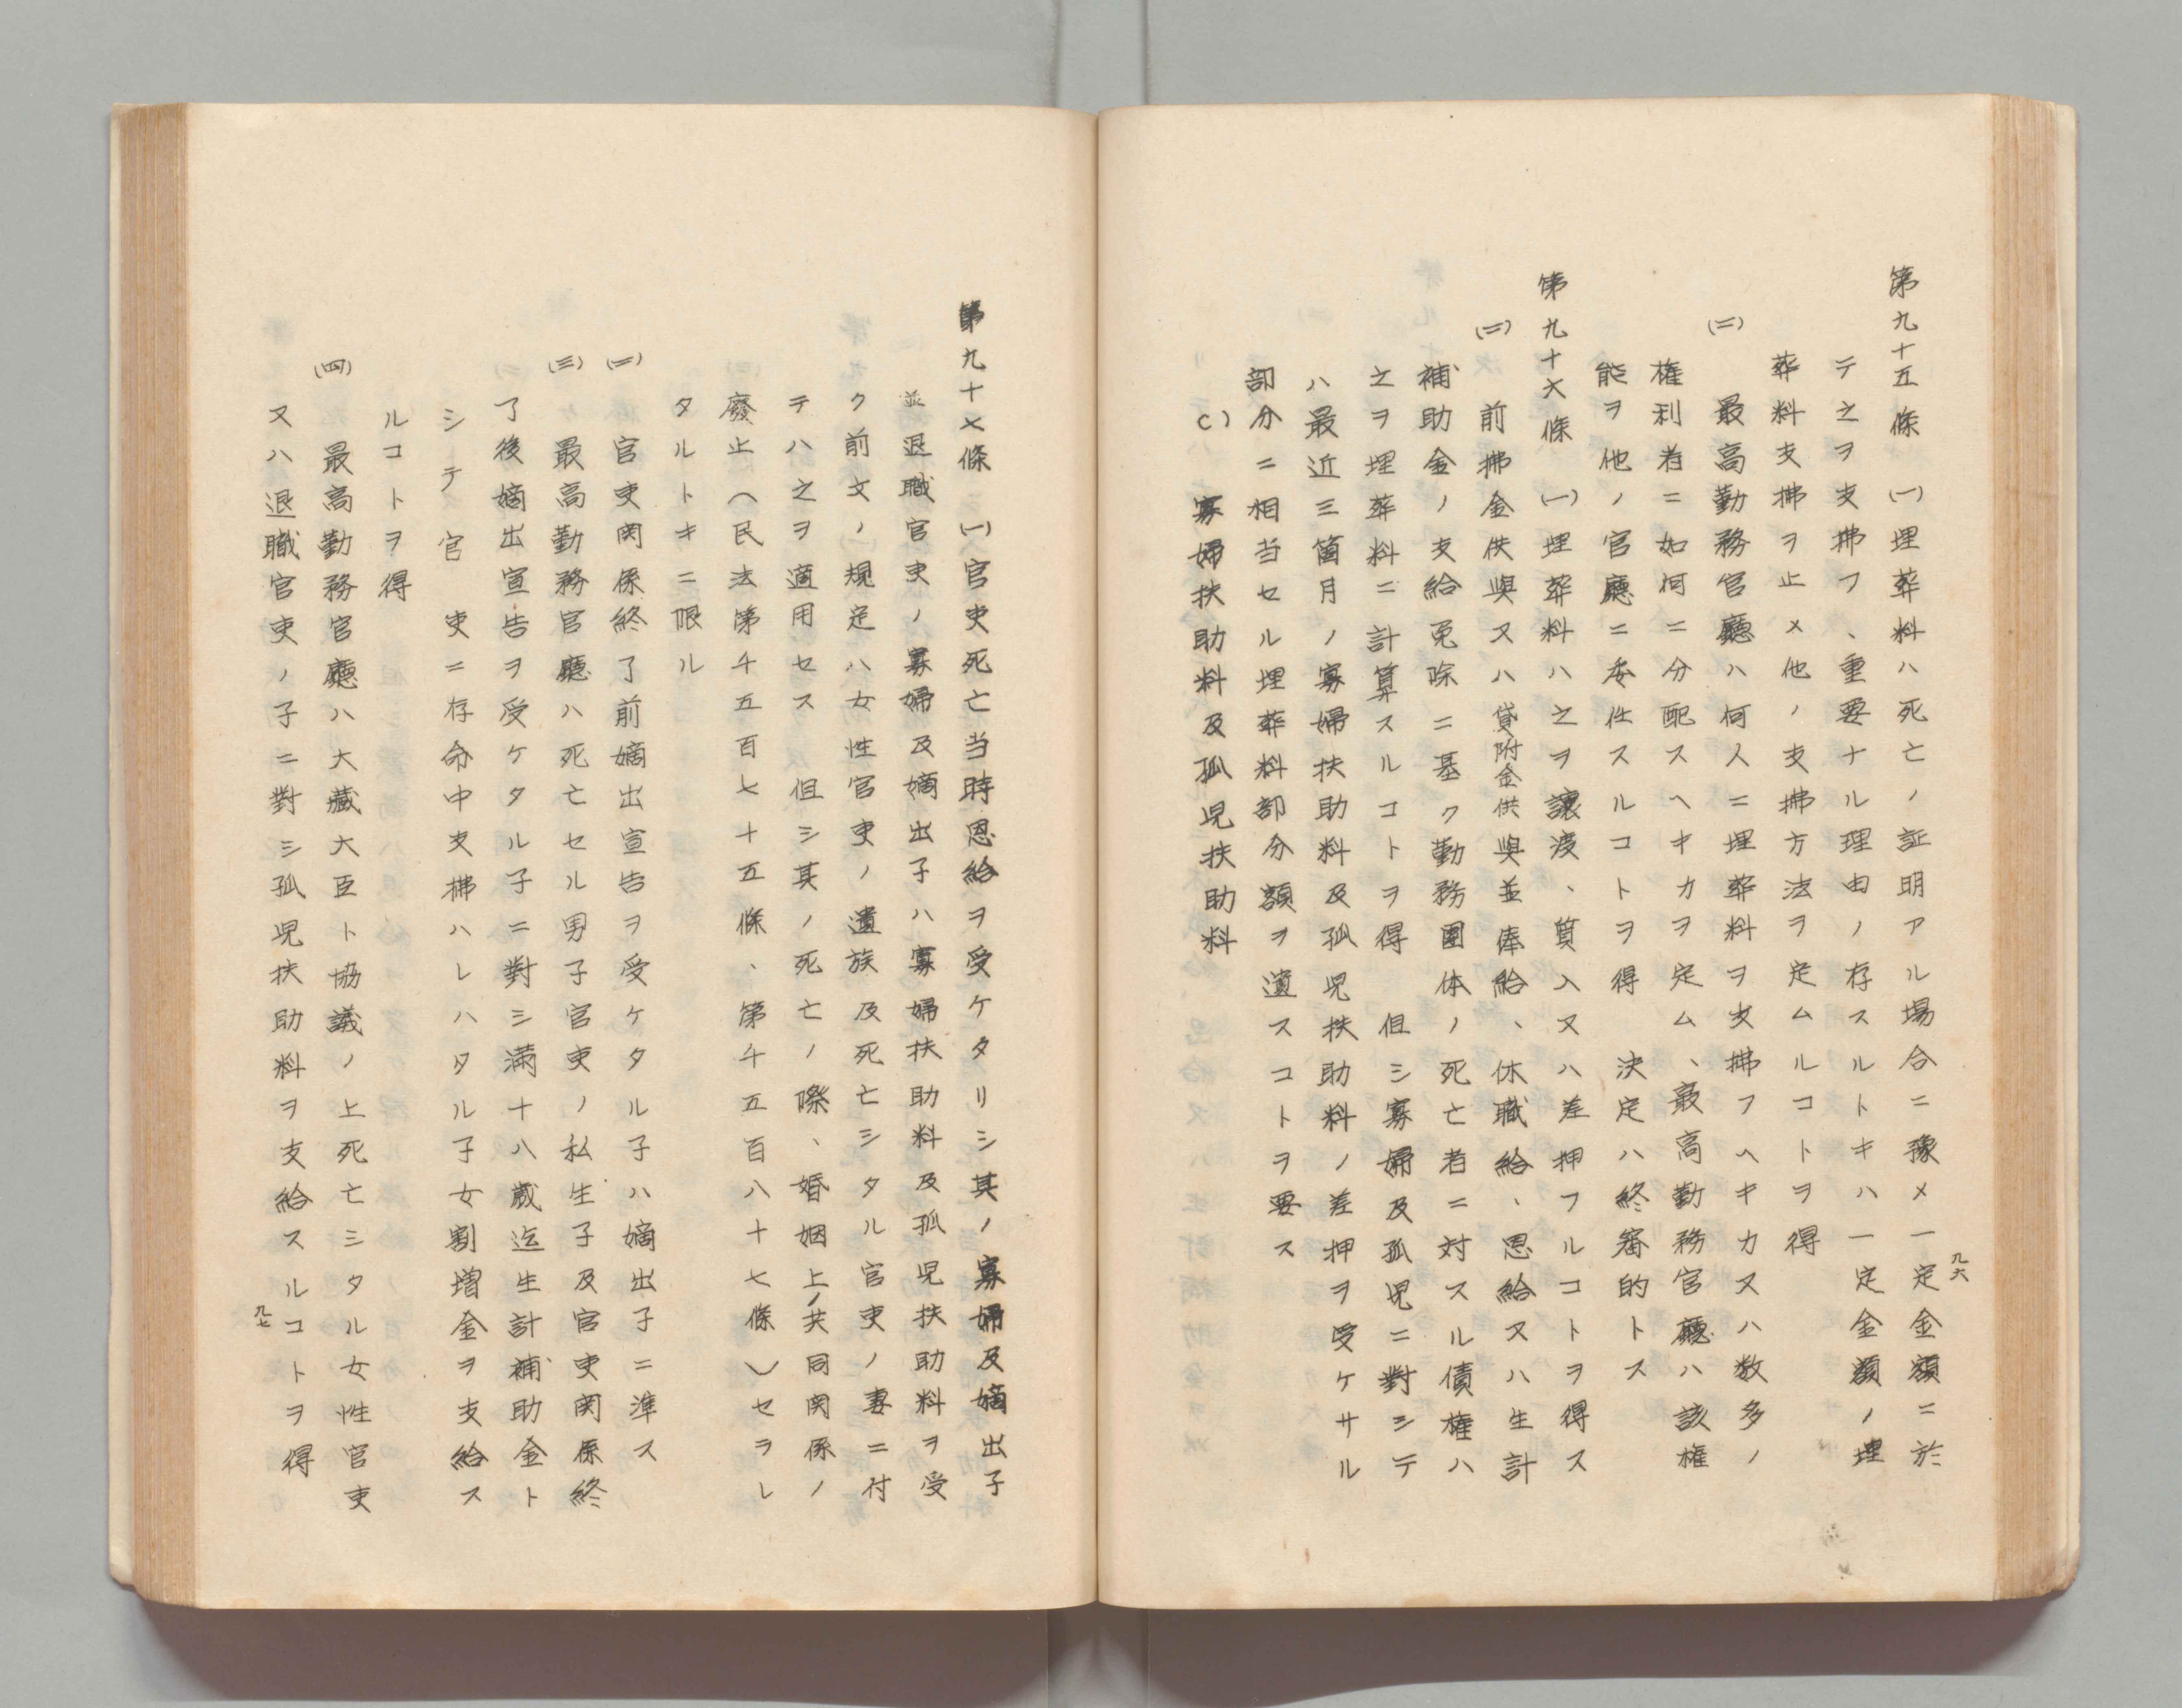 第九十五條 (一)埋葬料ハ死亡ノ証明アル場合ニ豫メ一定金額ニ於
テ之ヲ支拂フ、重要ナル理由ノ存スルトキハ一定金額ノ埋
葬料支拂ヲ止メ他ノ支拂方法ヲ定ムルコトヲ得
(二) 最高勤務官廳ハ何人ニ埋葬料ヲ支拂フヘキカ又ハ数多ノ
権利者ニ如何ニ分配スヘキカヲ定ム、最高勤務官廳ハ該権
能ヲ他ノ官廳ニ委任スルコトヲ得 決定ハ終審的トス
第九十六條 (一)埋葬料ハ之ヲ讓渡、質入又ハ差押フルコトヲ得ス
(二) 前拂金供與又ハ貸附金供與並俸給、休職給、恩給又ハ生計
補助金ノ支給免除ニ基ク勤務團体ノ死亡者ニ対スル債権ハ
之ヲ埋葬料ニ計算スルコトヲ得 但シ寡婦及孤児ニ對シテ
ハ最近三箇月ノ寡婦扶助料及孤児扶助料ノ差押ヲ受ケサル
部分ニ相当セル埋葬料部分額ヲ遺スコトヲ要ス
C) 寡婦扶助料及孤児扶助料
九六
第九十七條 (一)官吏死亡当時恩給ヲ受ケタリシ其ノ寡婦及嫡出子
並退職官吏ノ寡婦及嫡出子ハ寡婦扶助料及孤児扶助料ヲ受
ク前文ノ規定ハ女性官吏ノ遺族及死亡シタル官吏ノ妻ニ付
テハ之ヲ適用セス 但シ其ノ死亡ノ際、婚姻上ノ共同関係ノ
廢止(民法第千五百七十五條、第千五百八十七條)セラレ
タルトキニ限ル
(二) 官吏関係終了前嫡出宣告ヲ受ケタル子ハ嫡出子ニ準ス
(三) 最高勤務官廳ハ死亡セル男子官吏ノ私生子及官吏関係終
了後嫡出宣告ヲ受ケタル子ニ對シ満十八歳迄生計補助金ト
シテ官吏ニ存命中支拂ハレハタル子女割増金ヲ支給ス
ルコトヲ得
(四) 最高勤務官廳ハ大藏大臣ト協議ノ上死亡シタル女性官吏
又ハ退職官吏ノ子ニ對シ孤児扶助料ヲ支給スルコトヲ得
九七